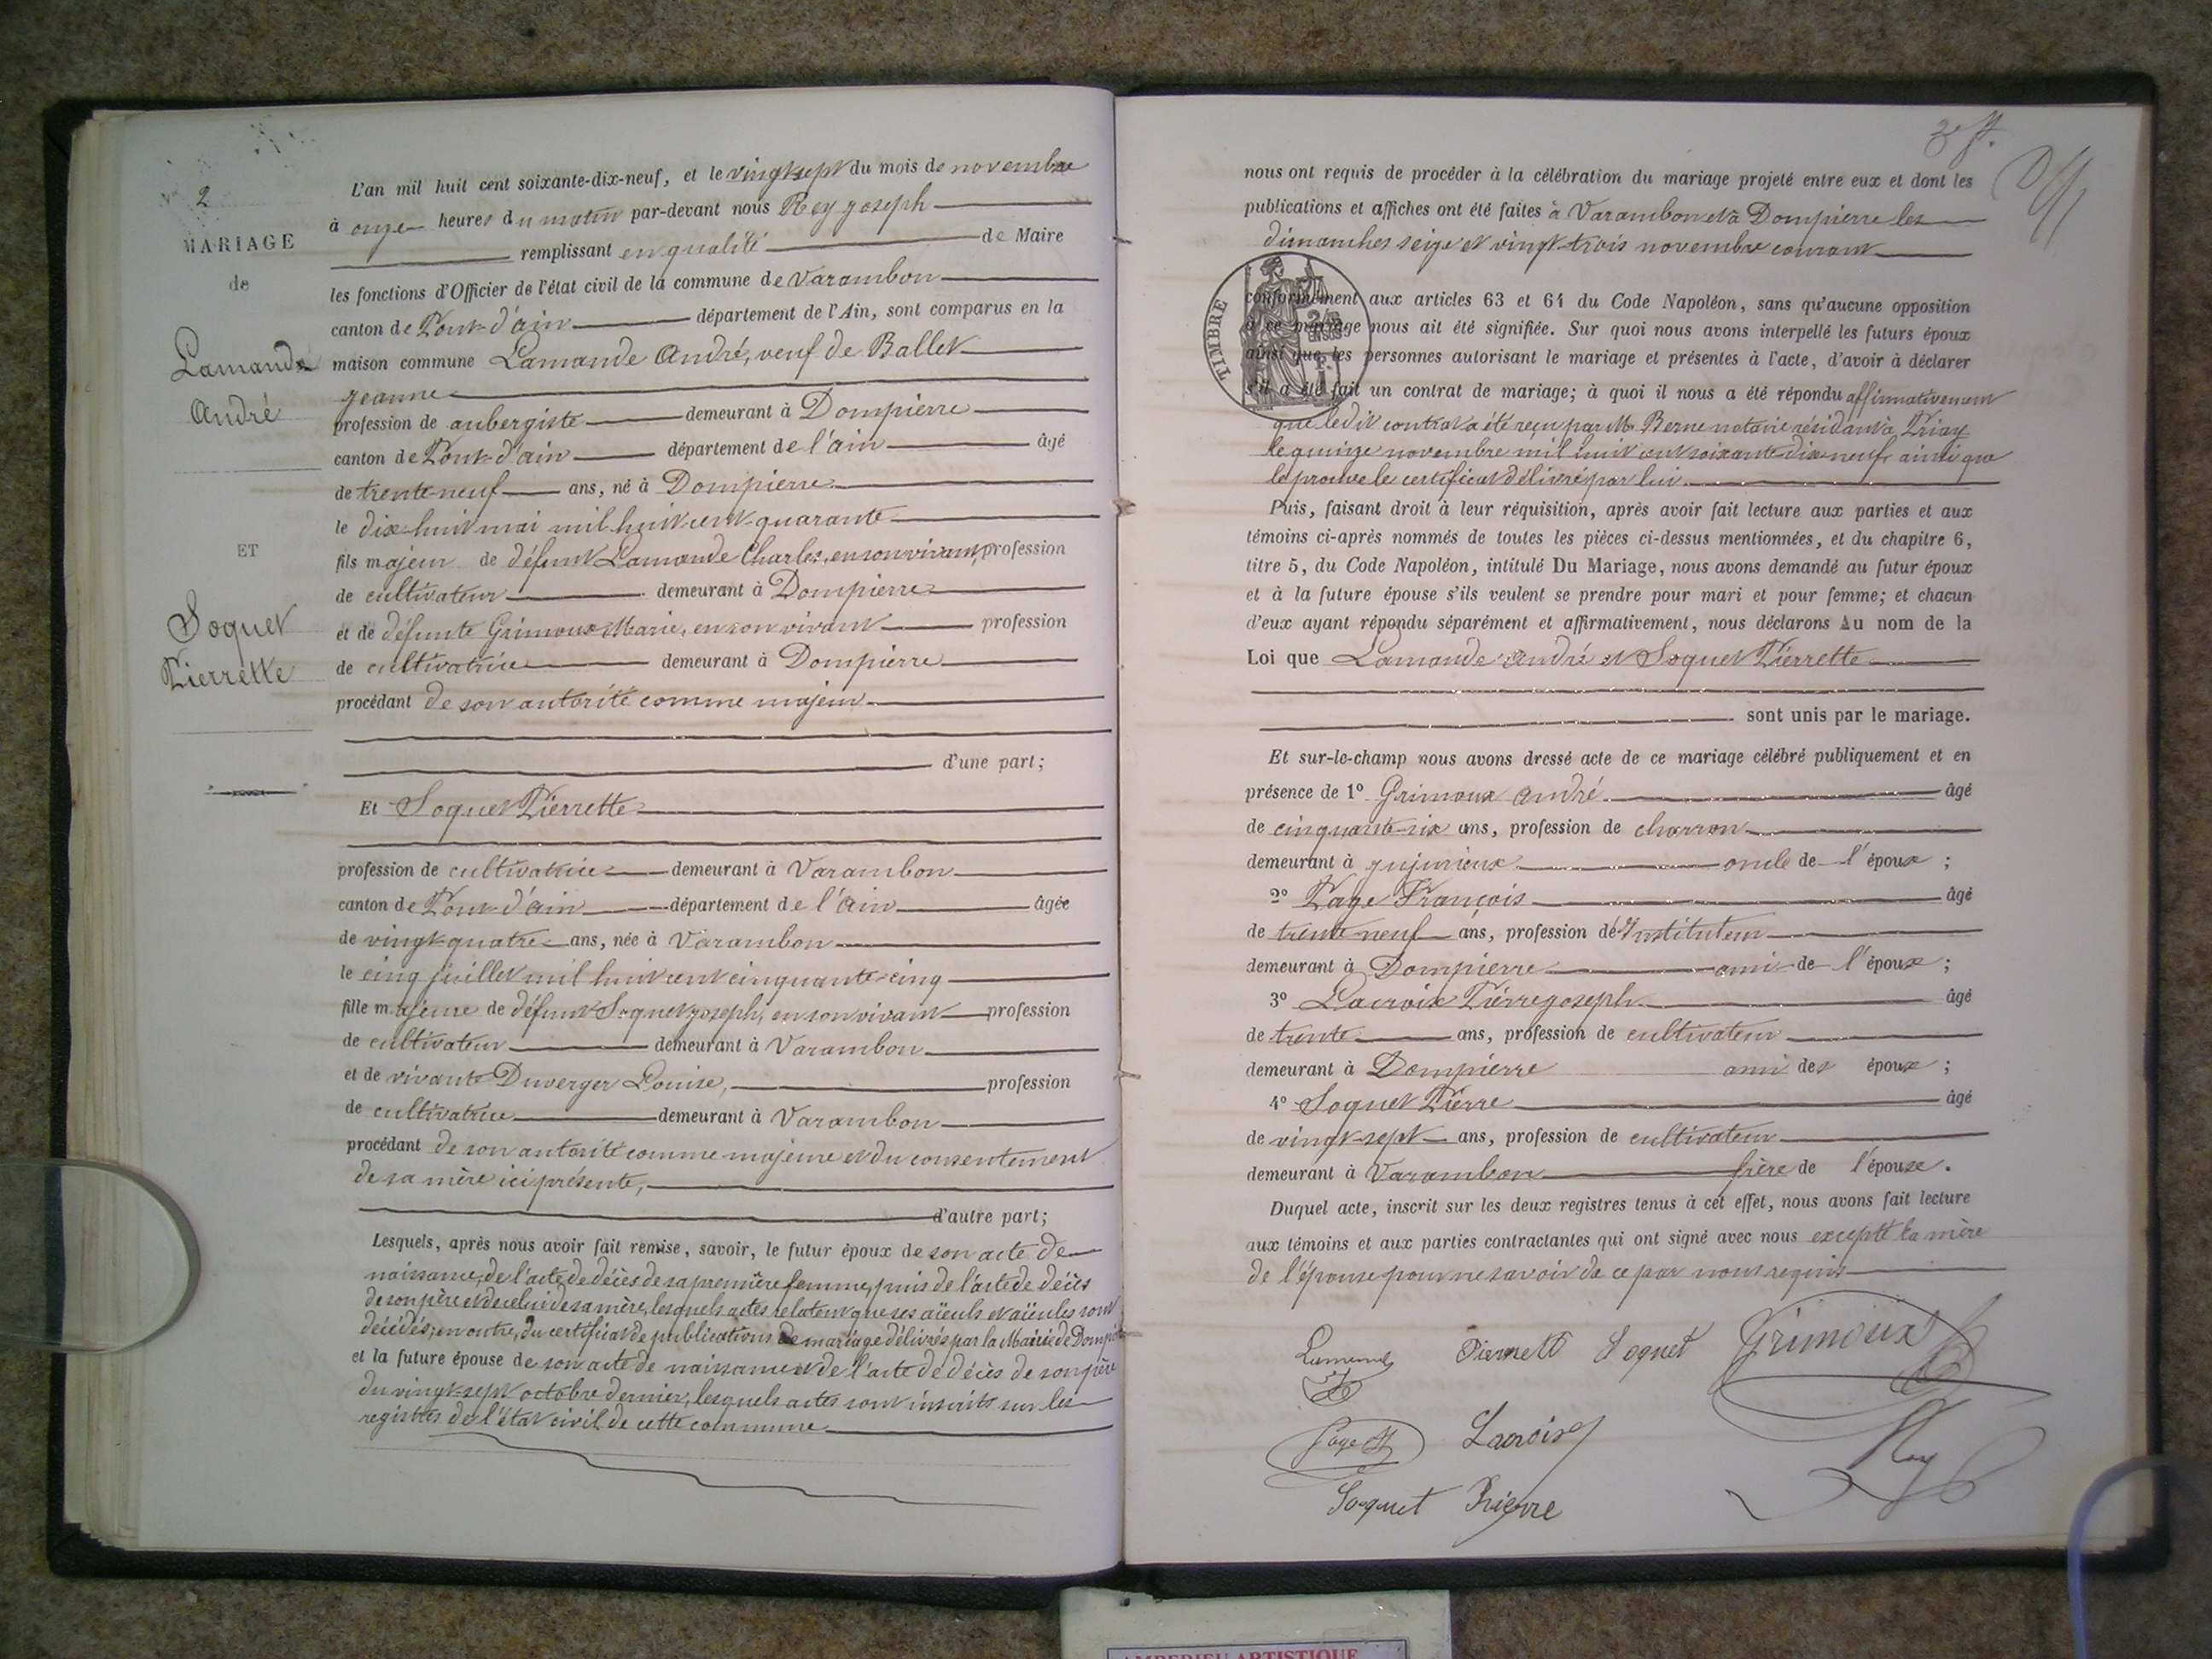 2
MARIAGE
de
Lamande
André
ET
Soquet
Pierrette
L'an mil huit cent soixante-dix-neuf, et le vingt-sept du mois de novembre
à onze heures du matin par-devant nous Rey Joseph
remplissant en qualité de Maire
les fonctions d'Officier de l'état civil de la commune de Varambon
canton de Pont-d'ain département de l'Ain, sont comparus en la
maison commune Lamande André, veuf de Ballet
Jeanne
profession de aubergiste demeurant à Dompierre
canton de Pont-d'ain département de l'ain âgé
de trente-neuf ans, né à Dompierre
le dix-huit mai mil huit cent quarante
fils majeur de défunt Lamande Charles, en son vivant, profession
de cultivateur demeurant à Dompierre
et de défunte Grimoux Marie, en son vivant profession
de cultivatrice demeurant à Dompierre
procédant de son autorité comme majeur
d'une part;
Et Soquet Pierrette
profession de cultivatrice demeurant à Varambon
canton de Pont-d'ain département de l'ain âgée
de vingt-quatre ans, née à Varambon
le cinq juillet mil huit cent cinquante-cinq
fille majeure de défunt Soquet Joseph, en son vivant profession
de cultivateur demeurant à Varambon
et de vivante Duverger Louise, profession
de cultivatrice demeurant à Varambon
procédant de son autorité comme majeure et du consentement
de sa mère ici présente,
d'autre part;
Lesquels, après nous avoir fait remise, savoir, le futur époux de son acte de
naissance, de l'acte de décès de sa première femme, puis de l'acte de décès
de son père et de celui de sa mère, lesquels actes relatent que ses aïeuls et aïeules sont
décédés; en outre, du certificat de publications de mariage délivrés par la Mairie de Dompierre
et la future épouse de son acte de naissance et de l'acte de décès de son père
du vingt-sept octobre dernier, lesquels actes sont inscrits sur les
registres de l'état civil de cette commune
nous ont requis de procéder à la célébration du mariage projeté entre eux et dont les
publications et affiches ont été faites à Varambon et à Dompierre les
dimanches seize et vingt-trois novembre courant
TIMBRE
conformément aux articles 63 et 64 du Code Napoléon, sans qu'aucune opposition
à ce mariage nous ait été signifiée. Sur quoi nous avons interpellé les futurs époux
ainsi que les personnes autorisant le mariage et présentes à l'acte, d'avoir à déclarer
s'il a été fait un contrat de mariage; à quoi il nous a été répondu affirmativement
que ledit contrat a été reçu par Me Berne notaire résidant à Priay
le quinze novembre mil huit cent soixante-dix-neuf ainsi que
le prouve le certificat délivré par lui.
Puis, faisant droit à leur réquisition, après avoir fait lecture aux parties et aux
témoins ci-après nommés de toutes les pièces ci-dessus mentionnées, et du chapitre 6,
titre 5, du Code Napoléon, intitulé Du Mariage, nous avons demandé au futur époux
et à la future épouse s'ils veulent se prendre pour mari et pour femme; et chacun
d'eux ayant répondu séparément et affirmativement, nous déclarons Au nom de la
Loi que Lamande André et Soquet Pierrette
sont unis par le mariage.
Et sur-le-champ nous avons dressé acte de ce mariage célébré publiquement et en
présence de 1º Grimoux André âgé
de cinquante-six ans, profession de charron
demeurant à Jujurieux oncle de l'époux ;
2º Page François âgé
de trente neuf ans, profession d'Instituteur
demeurant à Dompierre ami de l'époux ;
3º Lacroix Pierre Joseph âgé
de trente ans, profession de cultivateur
demeurant à Dompierre ami des époux ;
4º Soquet Pierre âgé
de vingt-sept ans, profession de cultivateur
demeurant à Varambon frère de l'épouse.
Duquel acte, inscrit sur les deux registres tenus à cet effet, nous avons fait lecture
aux témoins et aux parties contractantes qui ont signé avec nous excepté la mère
de l'épouse pour ne savoir de ce par nous requis
Lamande Pierrette Soquet Grimoux
Page Lacroix Rey
Soquet Pierre
AMBERIEU ARTISTIQUE